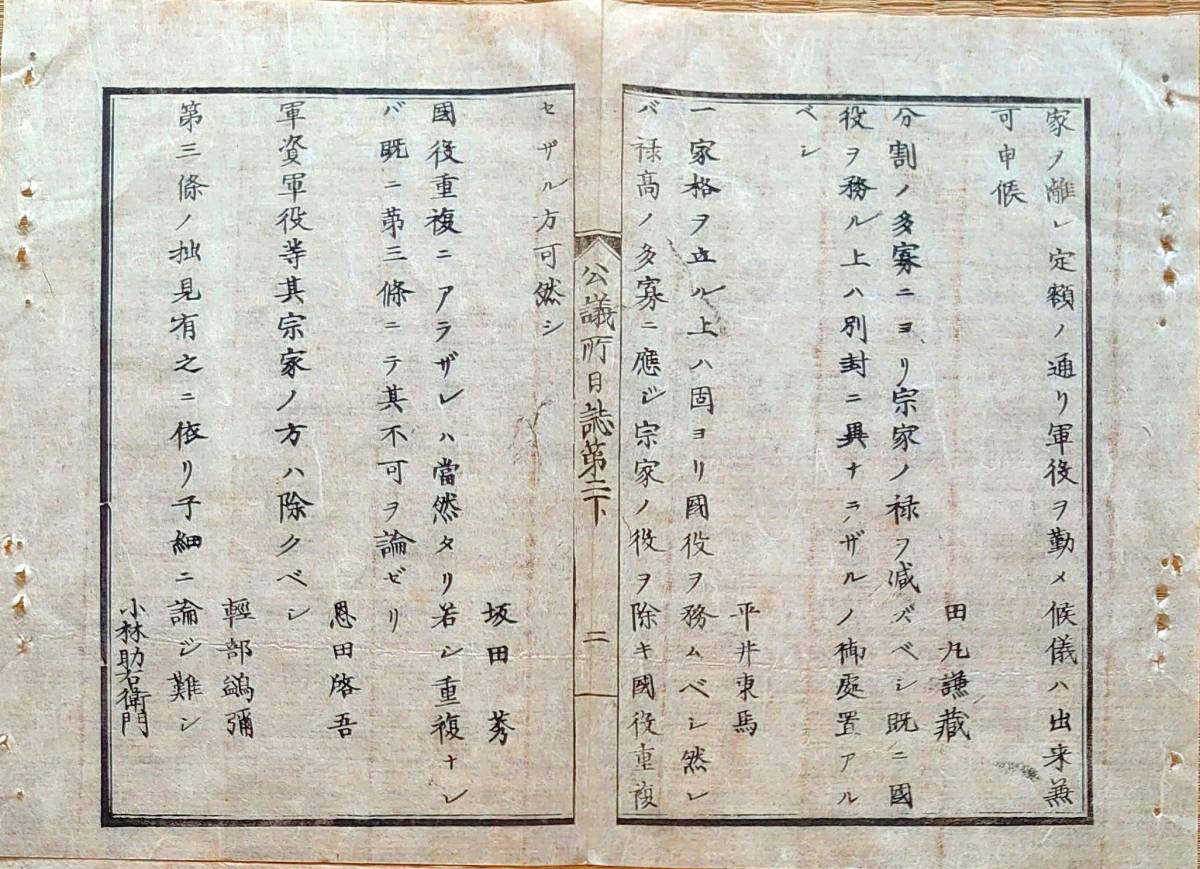 家ノ離レ定額ノ通リ軍役ヲ勤メ候儀ハ出来兼
可申候
田丸謙蔵
分割ノ多寡ニヨリ宗家ノ禄ヲ減ズベシ既ニ國
役ヲ務ル上ハ別封ニ異ナラザルノ御處置アル
ベシ
平井東馬
一家格ヲ立ル上ハ固ヨリ國役ヲ務ムベシ然レ
バ禄高ノ多寡ニ應ジ宗家ノ役ヲ除キ國役重複
公議所日誌第二下
二
セザル方可然シ
坂田莠
國役重複ニアラザレハ當然タリ若シ重複ナレ
バ既ニ第三條ニテ其不可ヲ論ゼリ
恩田啓吾
軍資軍役等其宗家ノ方ハ除クベシ
輕部 彌
第三條ノ拙見有之ニ依リ子細ニ論ジ難シ
小林助右衛門